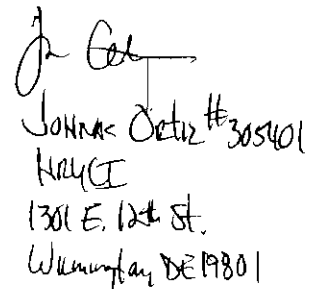 Ortiz #305401
HRYCI
1301 E. 12th St.
Wilmington, DE 19801